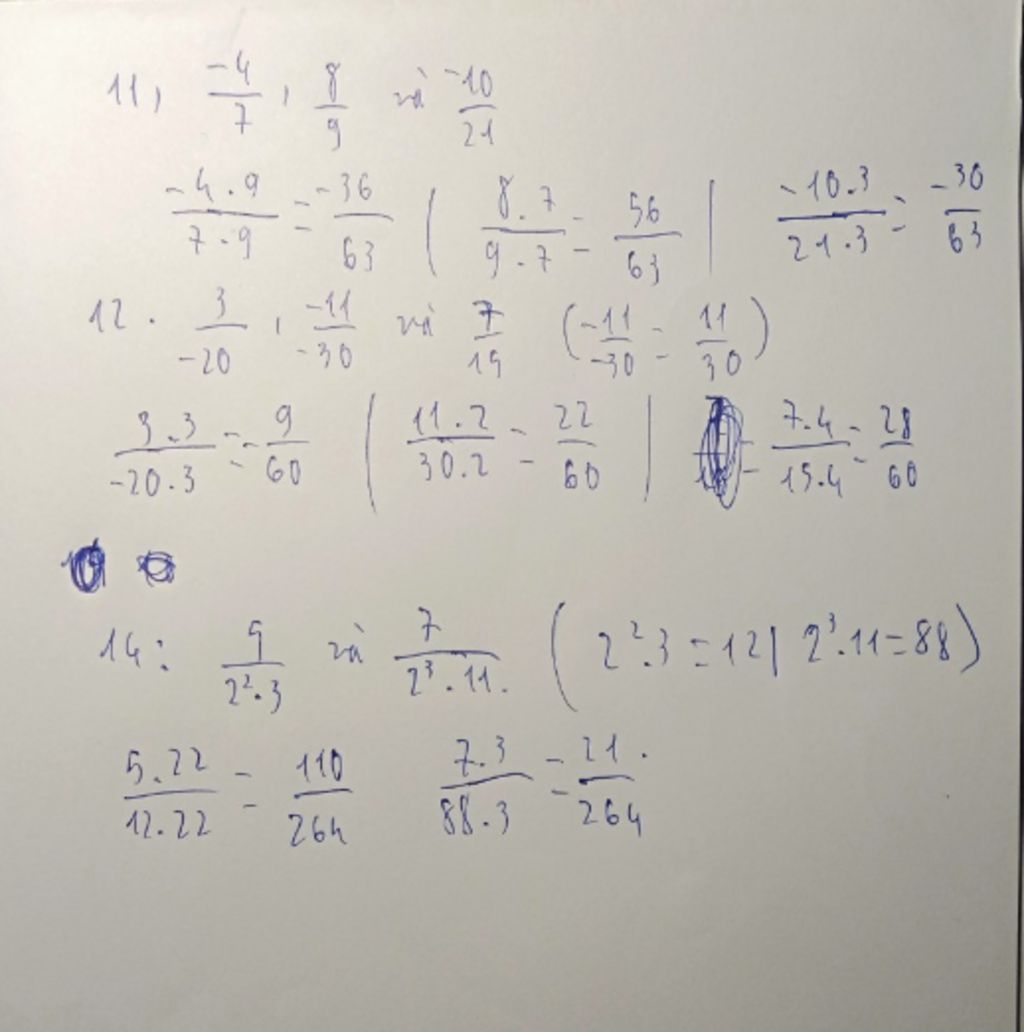 11, -4/7, 8/9 và -10/21
-4.9/7.9 = -36/63 | 8.7/9.7 = 56/63 | -10.3/21.3 = -30/63
12. 3/-20, -11/-30 và 7/15 (-11/-30 = 11/30)
3.3/-20.3 = -9/60 | 11.2/30.2 = 22/60 | = 7.4/15.4 = 28/60
14: 5/2².3 và 7/2³.11. (2².3 = 12 | 2³.11 = 88)
5.22/12.22 = 110/264 7.3/88.3 = 21/264.